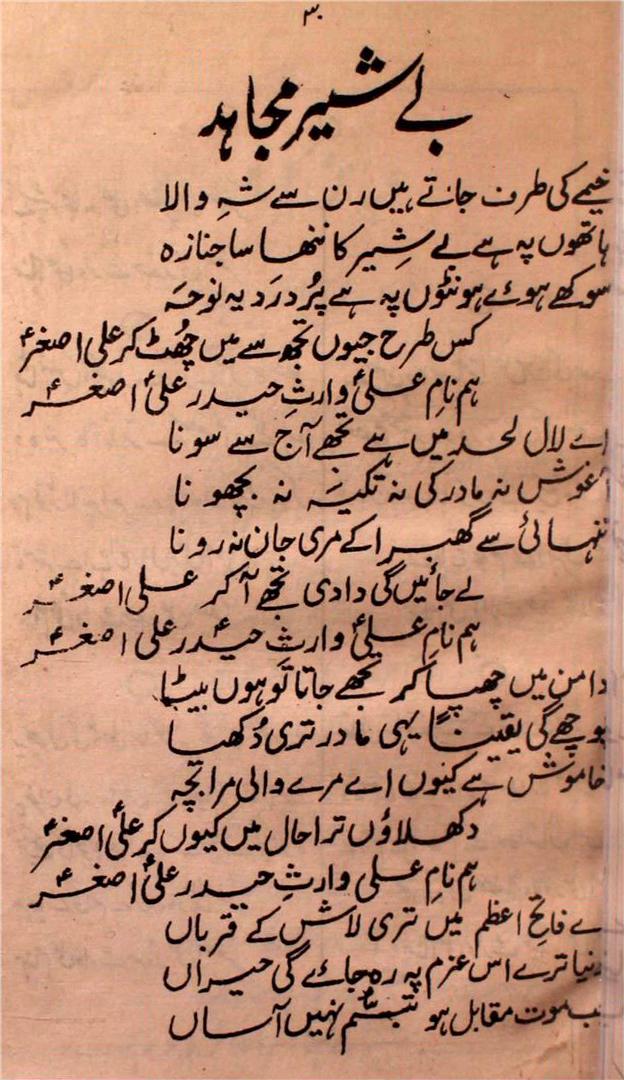 ۳۰
بے شیر مجاہد
خیمے کی طرف جاتے ہیں رن سے شہِ والا
ہاتھوں پہ ہے بے شِیر کا ننھا سا جنازہ
سوکھے ہوئے ہونٹوں پہ ہے پُر درَد یہ نوحہَ
کس طرح جیوں تجھ سے میں چُھٹ کر علی اصغرؑ
ہم نامِ علیؑ وارثِ حیدر علیؑ اصغرؑ
اے لال لحد میں ہے تجھے آج سے سونا
آغوش نہ مادر کی نہ تکیہَ نہ بچھونا
تنہائی سے گھبرا کے مری جان نہ رونا
لے جائیں گی دادی تجھے آکر علی اصغرؑ
ہم نامِ علیؑ وارثِ حیدرؑ علی اصغرؑ
دامن میں چھپا کر تجھے جاتا تو ہوں بیٹا
پوچھے گی یقیناً یہی مادر تری دُکھیا
خاموش ہے کیوں اے مرے والی مرا بچہ
دکھلاؤں ترا حال میں کیوں کر علیؑ اصغرؑ
ہم نامِ علی وارثِ حیدر علیؑ اصغرؑ
اے فاتحِ اعظم میں تری لاش کے قرباں
دنیا ترے اس عزم پہ رہ جائے گی حیراں
جب موت مقابل ہو تبسّم نہیں آساں